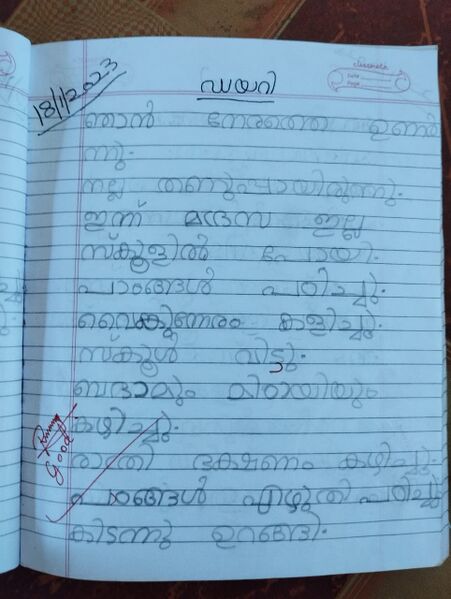 classmate
Date
Page
18/1/2023
ഡയറി
ഞാൻ നേരത്തെ ഉണർ
ന്നു.
നല്ല തണുപ്പായിരുന്നു.
ഇന്ന് മദ്രസ ഇല്ല
സ്കൂളിൽ പോയി.
പാഠങ്ങൾ പഠിച്ചു.
വൈകുന്നേരം കളിച്ചു.
സ്കൂൾ വിട്ടു.
ബദാമും മിഠായിയും
കഴിച്ചു.
രാത്രി ഭക്ഷണം കഴിച്ചു.
പാഠങ്ങൾ എഴുതി പഠിച്ചു
കിടന്നു ഉറങ്ങി.
Good